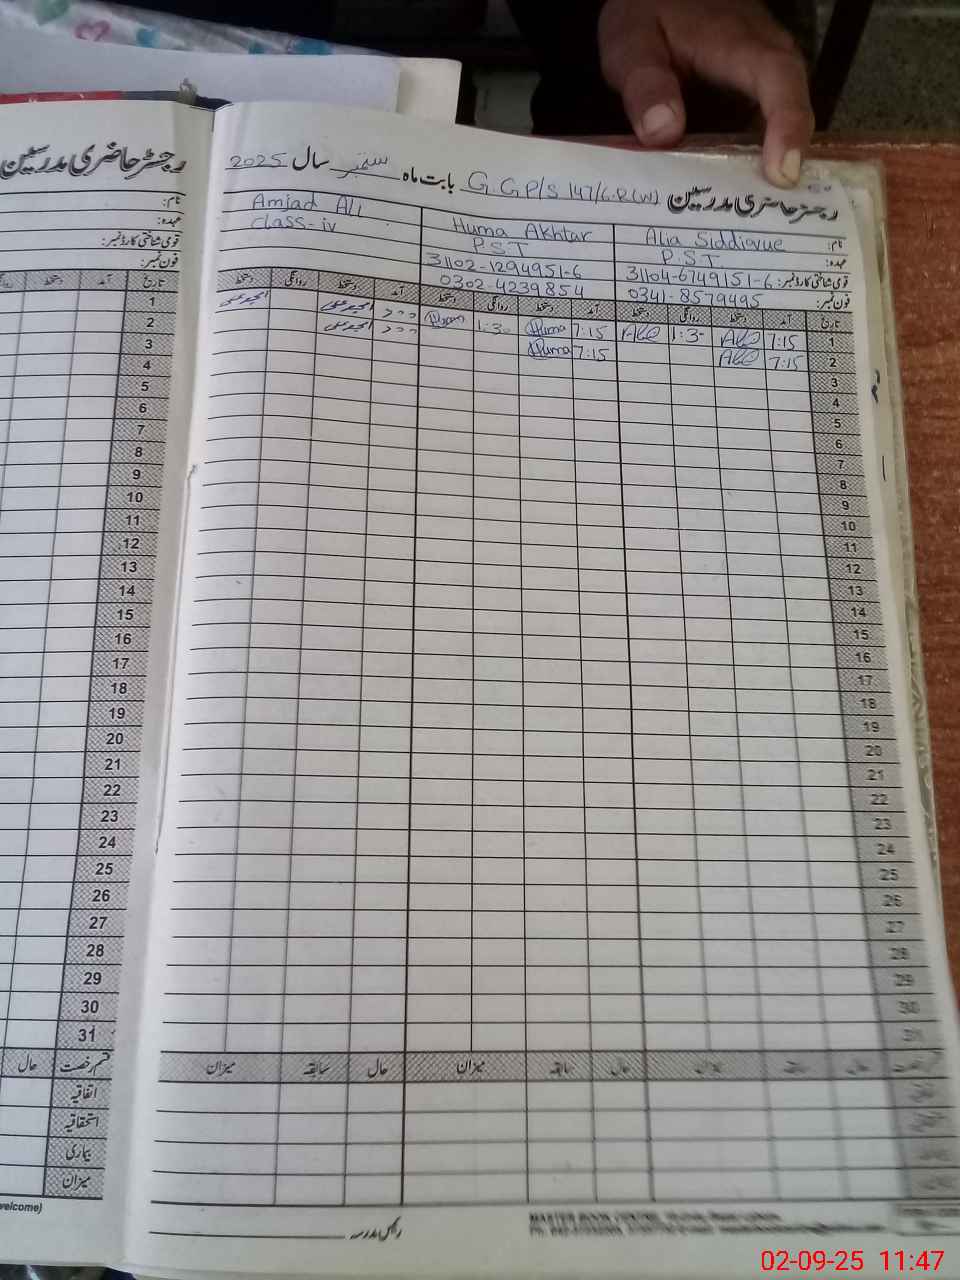 رجسٹر حاضری مدرسین
نام:
عہدہ:
قومی شناختی کارڈ نمبر:
فون نمبر:
تاریخ آمد دستخط
1
2
3
4
5
6
7
8
9
10
11
12
13
14
15
16
17
18
19
20
21
22
23
24
25
26
27
28
29
30
31
قسم رخصت حال
اتفاقیہ
استحقاقیہ
بیماری
میزان
welcome)
رجسٹر حاضری مدرسین G.G.P/S 147/6.R(W) بابت ماہ ستمبر سال 2025
نام: Alia Siddique Huma Akhtar Amjad Ali
عہدہ: P.S.T P.S.T Class-iv
قومی شناختی کارڈ نمبر: 31104-6749151-6 31102-1294951-6
فون نمبر: 0341-8579495 0302-4239854
تاریخ آمد دستخط روانگی دستخط آمد دستخط روانگی دستخط آمد دستخط روانگی دستخط
1 7:15 1:30 7:15 Huma 1:30
2 7:15 7:15 Huma
3
4
5
6
7
8
9
10
11
12
13
14
15
16
17
18
19
20
21
22
23
24
25
26
27
28
29
30
31
حال سابقہ میزان حال سابقہ میزان حال سابقہ میزان
رئیس مدرسہ
02-09-25 11:47